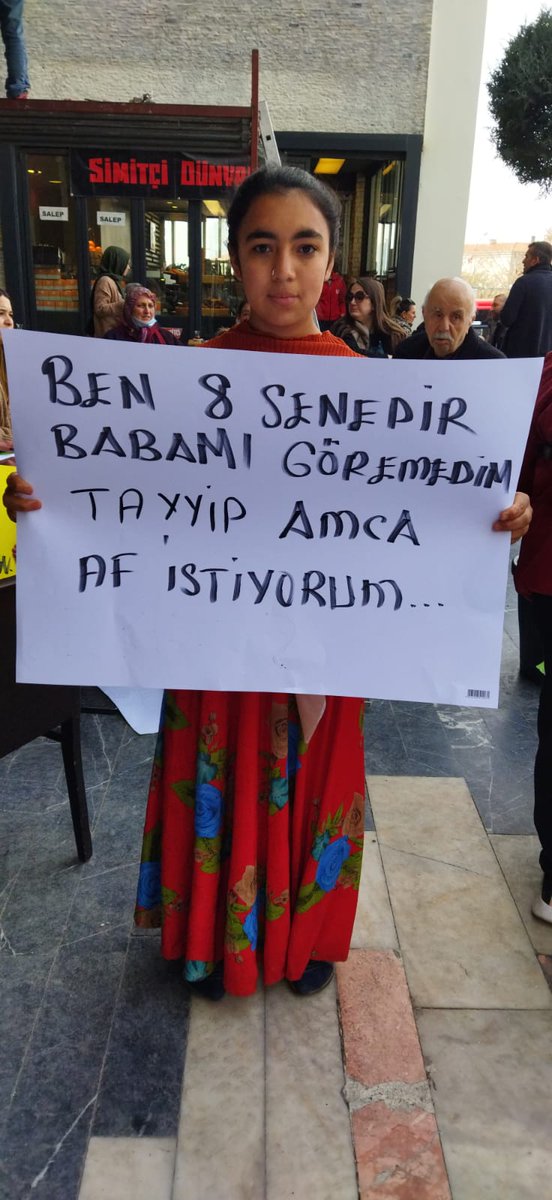 SİMİTÇİ DÜNYA
SALEP
SALEP
BEN 8 SENEDİR
BABAMI GÖREMEDİM
TAYYİP AMCA
AF İSTİYORUM...